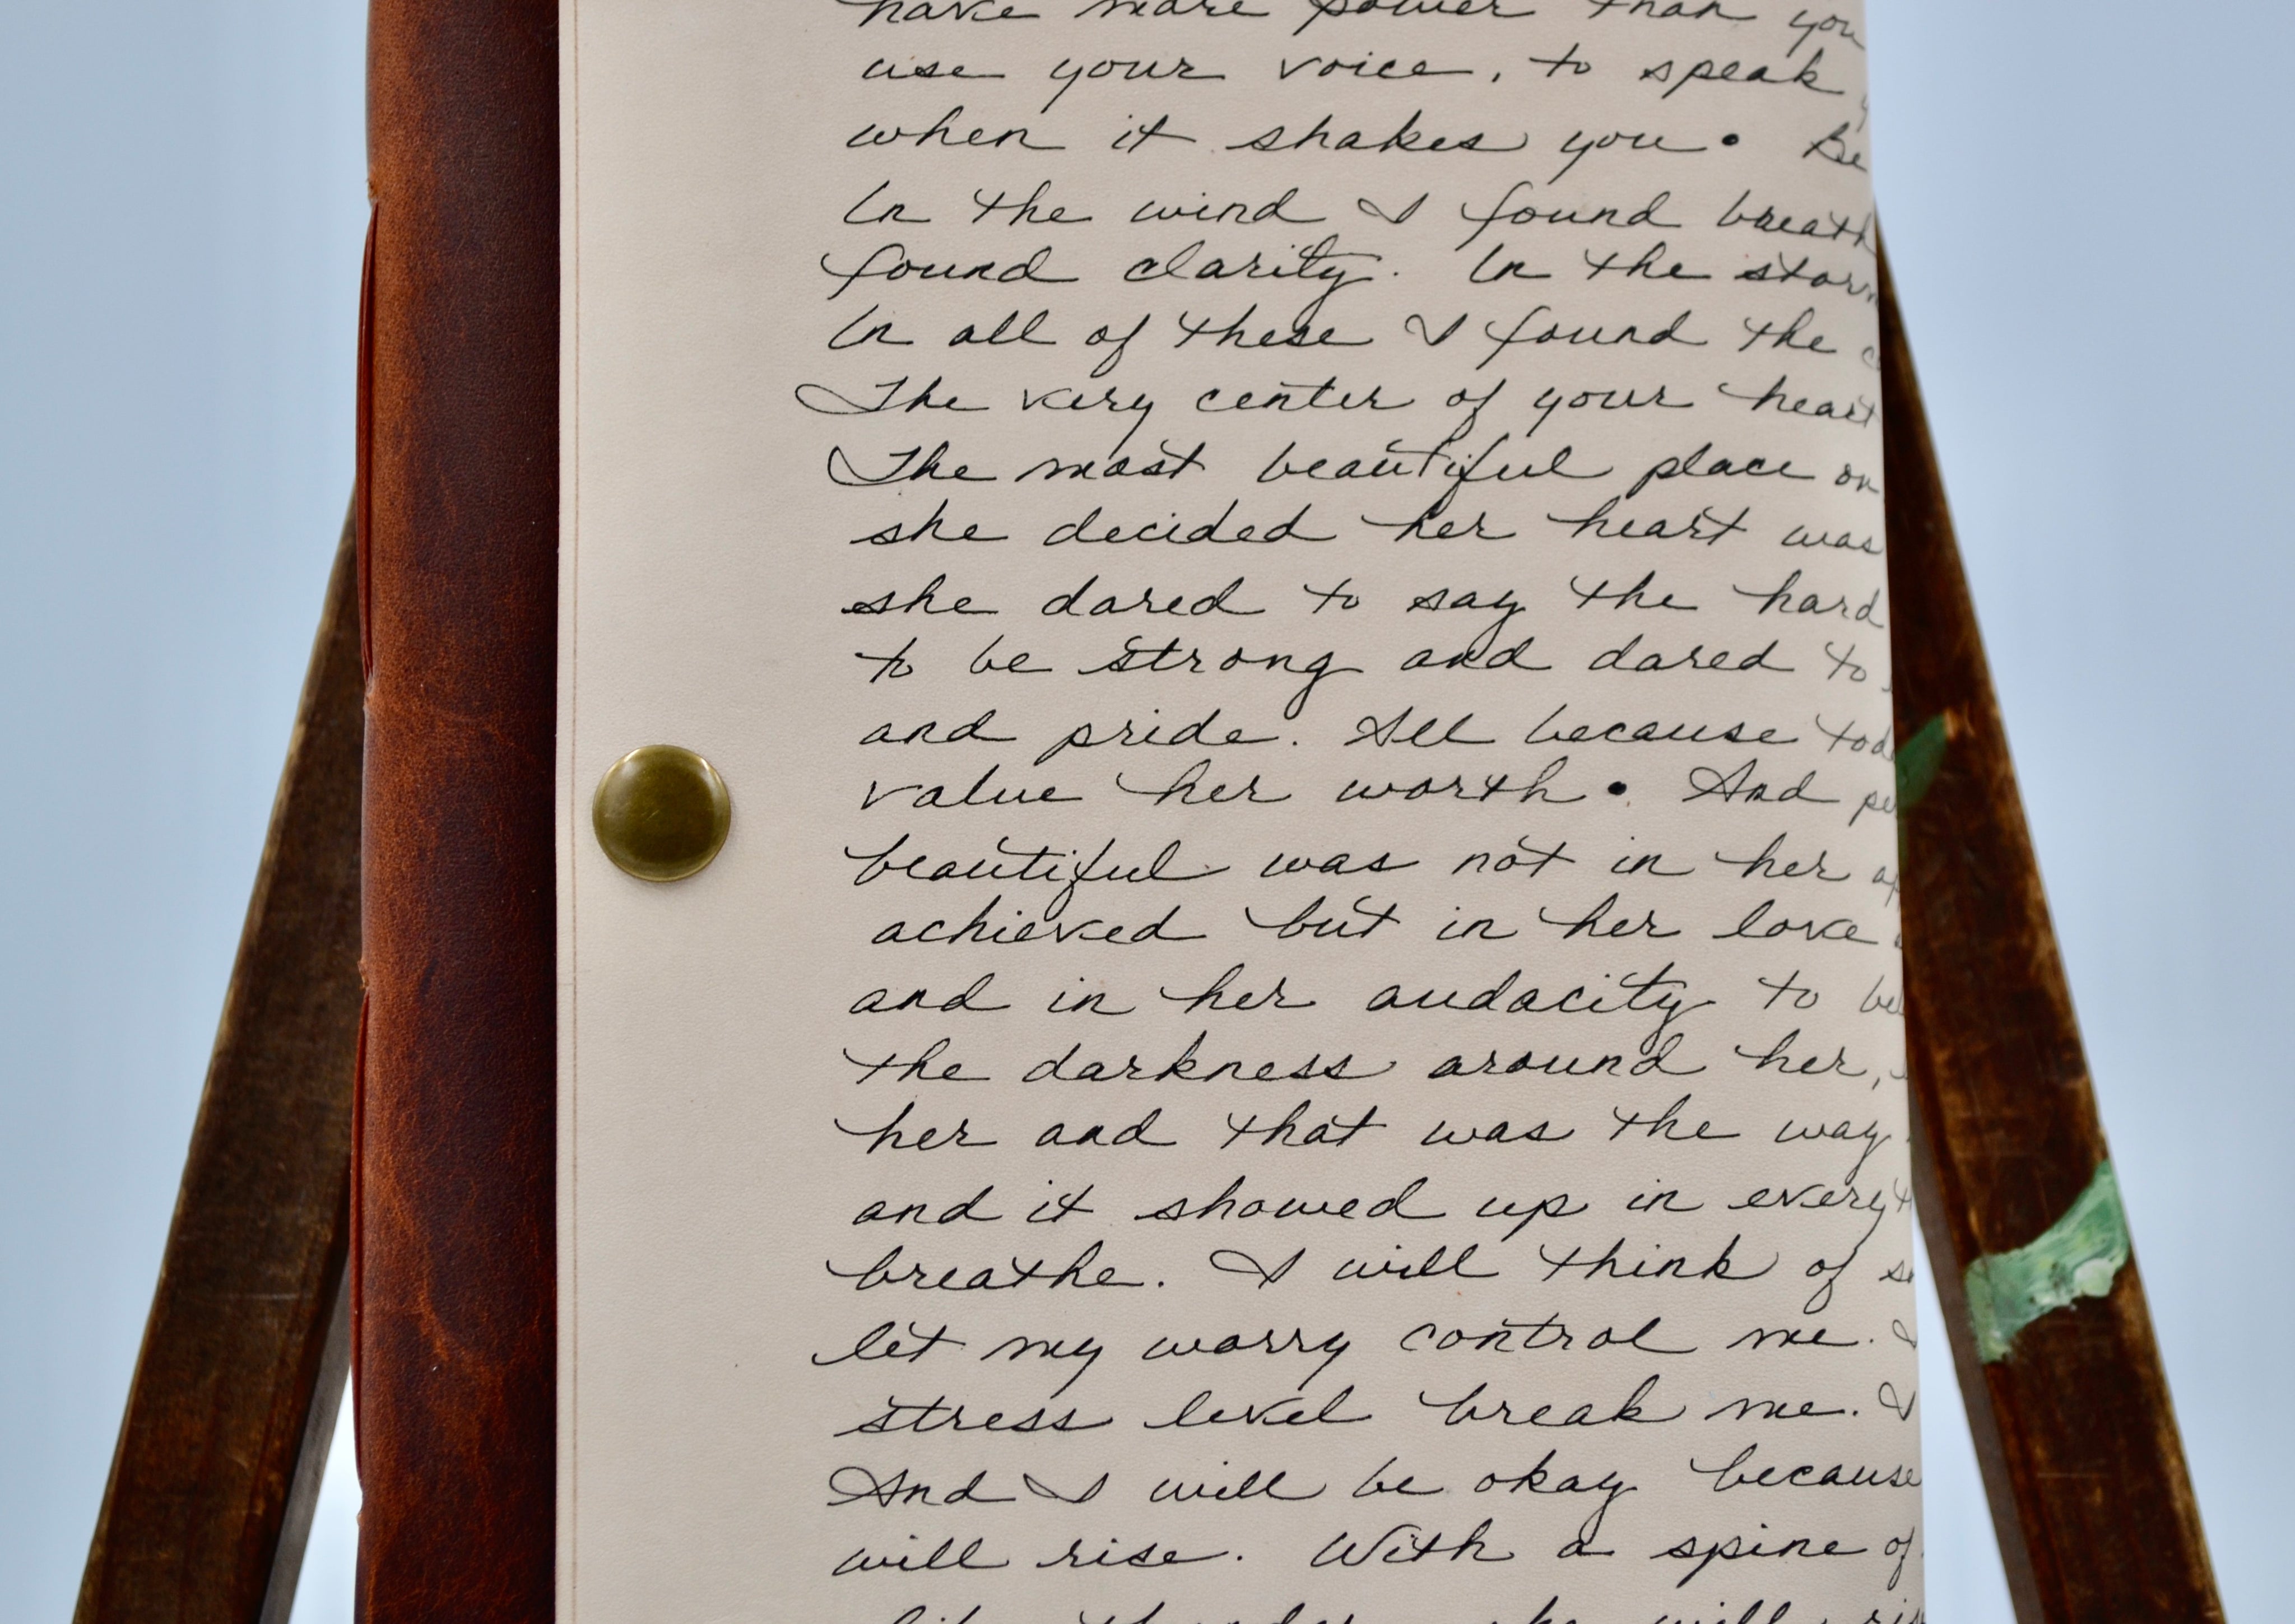 have more power than you
use your voice, to speak
when it shakes you. Be
In the wind I found breath
found clarity. In the storm
In all of these I found the
The very center of your heart
The most beautiful place on
she decided her heart was
she dared to say the hard
to be strong and dared to
and pride. All because
value her worth. And
beautiful was not in her
achieved but in her love
and in her audacity to
the darkness around her,
her and that was the way
and it showed up in every
breathe. I will think of
let my worry control me. I
stress level break me. I
And I will be okay because
will rise. With a spine of
will